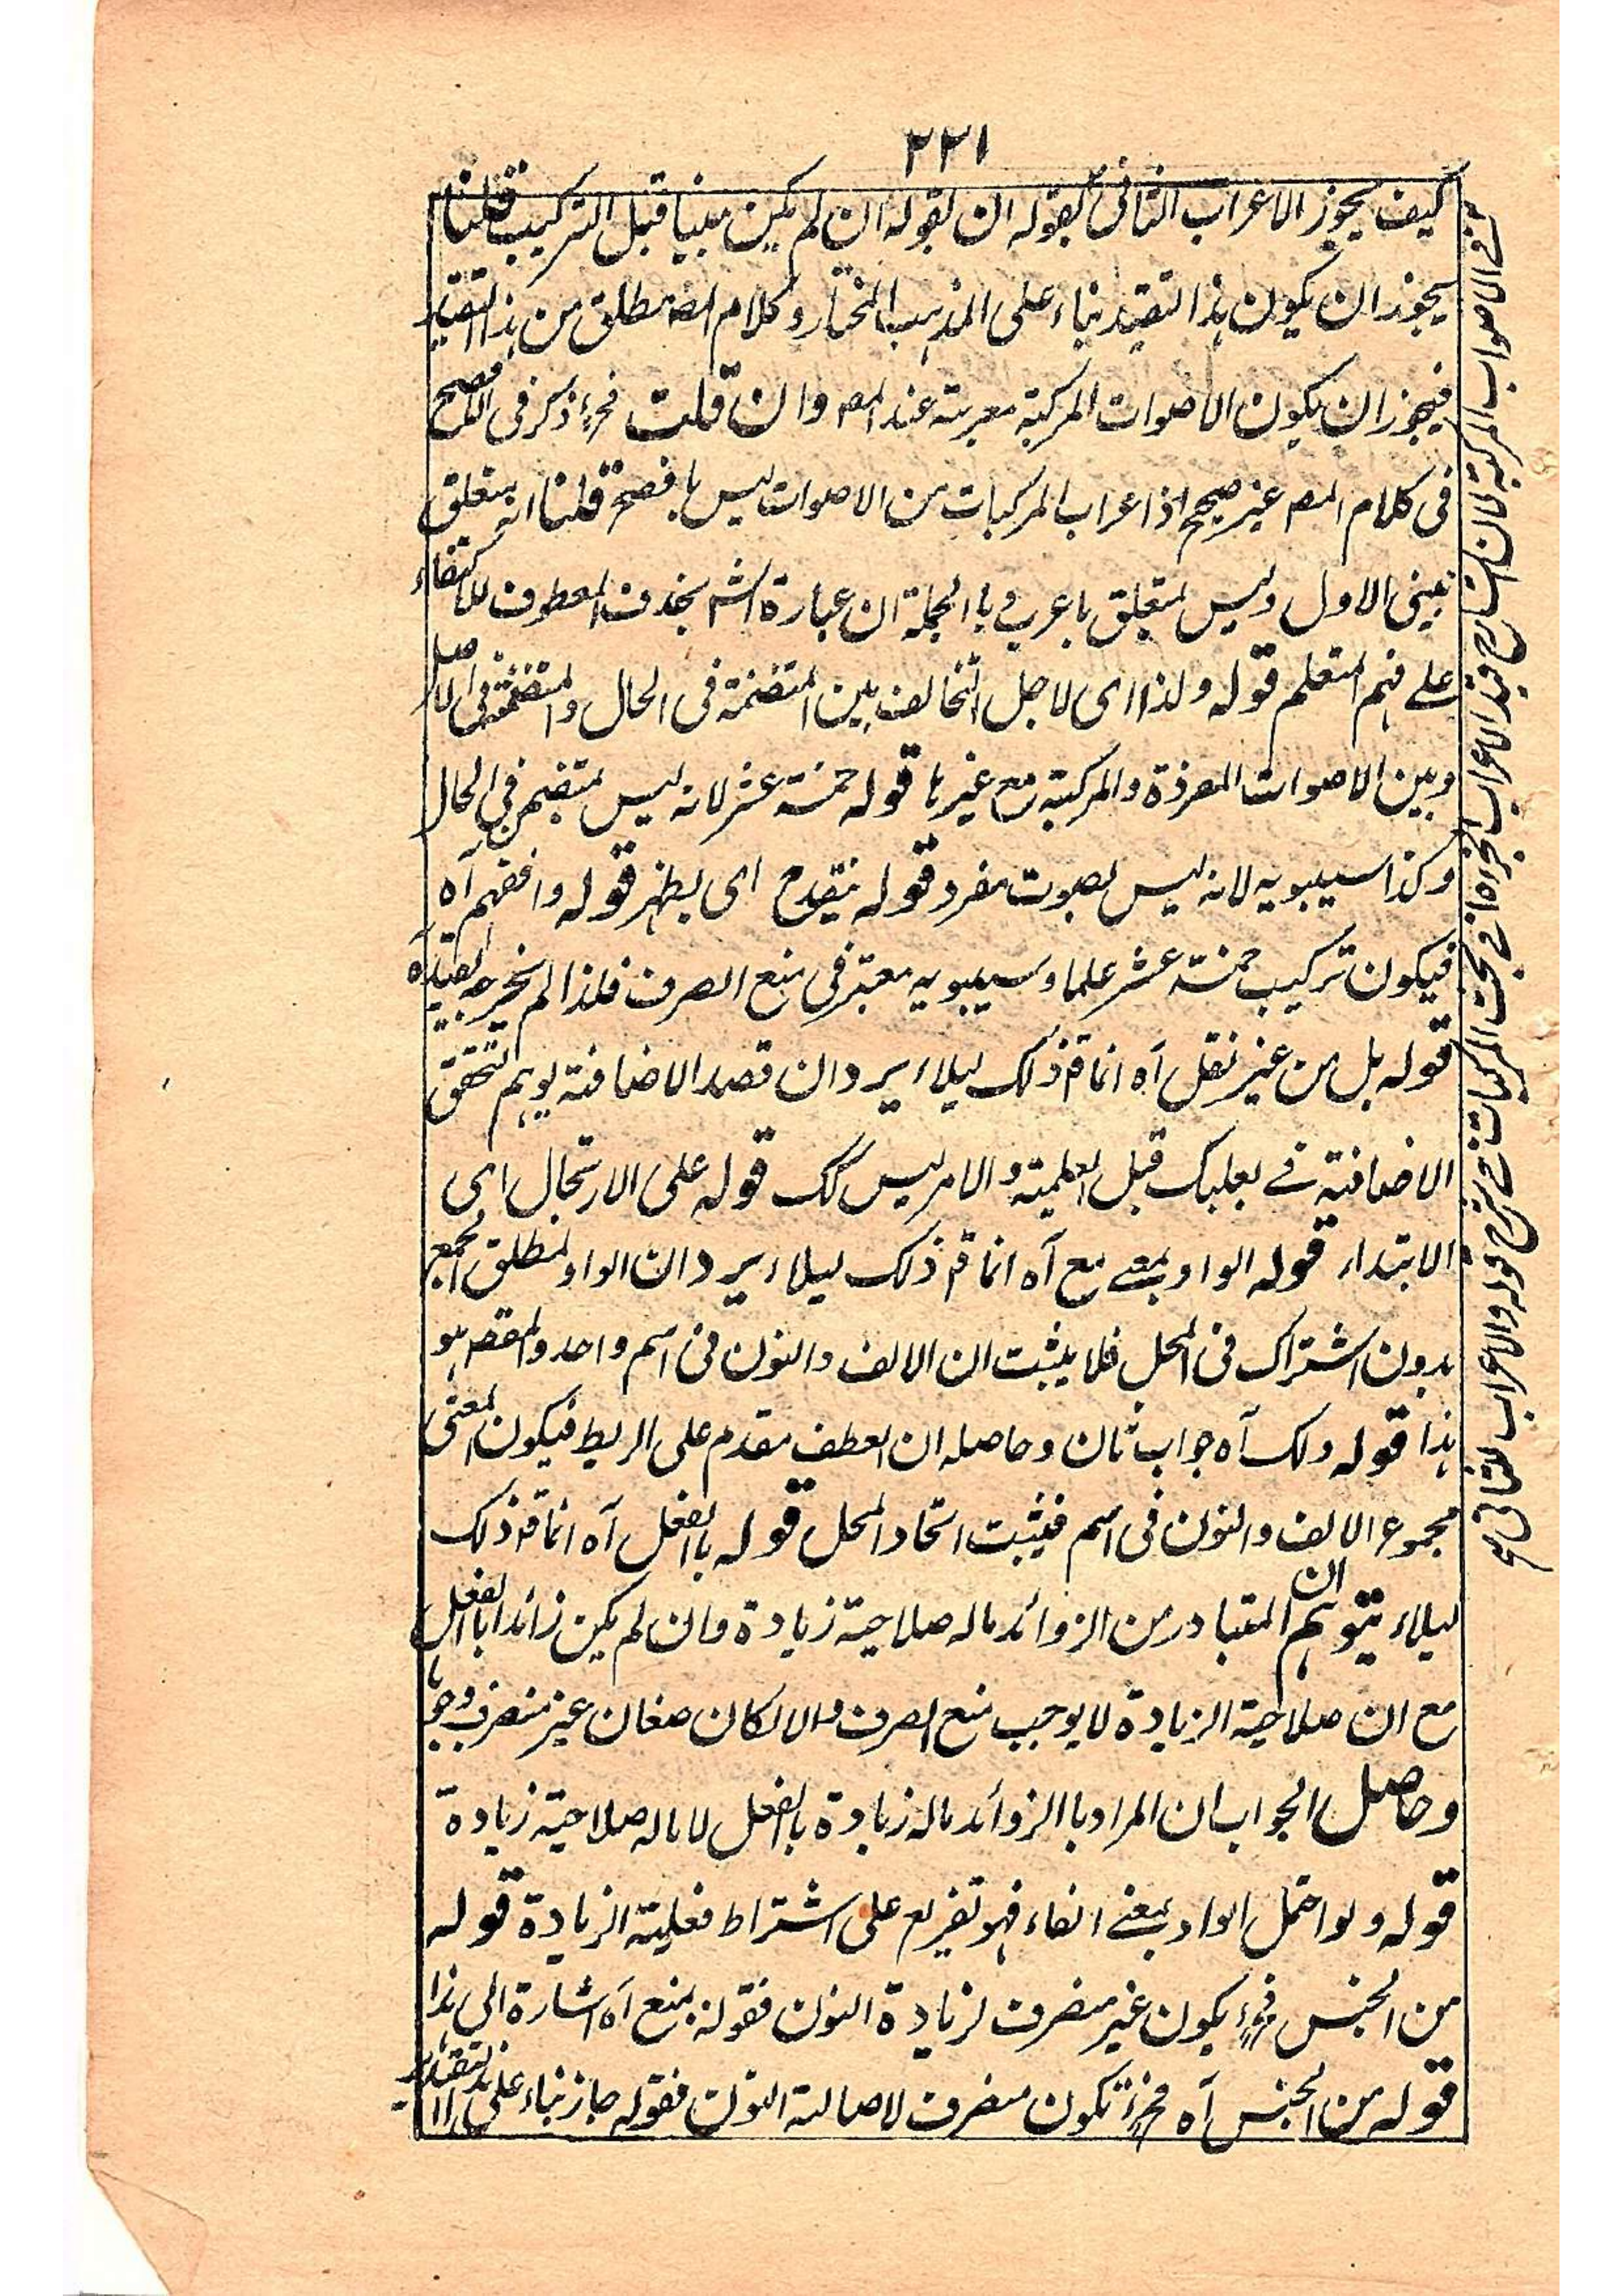 ٢٢١
كيف يجوز الاعراب الثانى بقوله ان لم يكن مبنيا قبل التركيب قلنا
يجوز ان يكون هذا التقييد بناء على المذهب المختار وكلام المصـ مطلق من هذا التقييد
فيجوز ان يكون الاصوات المركبة معربة عند المصـ وان قلت فحـ ذكر فى الافصح
فى كلام المصـ غير صحيح اذا اعراب المركبات من الاصوات ليس بافصح قلنا انه متعلق
ببنى الاول وليس بمتعلق باعرب وبا الجملة ان عبارة الشـ بحذف المعطوف للاكتفاء
على فهم المتعلم قوله ولذا اى لاجل التخالف بين المتضمنة فى الحال والمتضمنة فى الاصل
وبين الاصوات المفردة والمركبة مع غيرها قوله خمسة عشر لانه ليس بمتضمن فى الحال
وكذا سيبويه لانه ليس بصوت مفرد قوله ينقدح اى يظهر قوله وافقهم آه
فيكون تركيب خمسة عشر علما وسيبويه معتبر فى منع الصرف فلذا لم يخرجه بقيد آه
قوله بل من غير نقل آه انما قـ ذلك ليلاء يرد ان قصد الاضافة يوهم تحقق
الاضافية فے بعلبك قبل العلمية والامر ليس كك قوله على الارتجال اى
الابتداء قوله الواو بمعے مع آه انما قـ ذلك ليلاء يرد ان الواو لمطلق الجمع
بدون اشتراك فى المحل فلا يثبت ان الالف والنون فى اسم واحد والمقصـ هو
هذا قوله ولك آه جواب ثان وحاصله ان العطف مقدم على الربط فيكون المعنى
مجموع الالف والنون فى اسم فيثبت اتحاد المحل قوله باالفعل آه انما قـ ذلك
ليلاء يتوهم ان المتبادر من الزوائد ماله صلاحية زيادة وان لم يكن زائدا باالفعل
مع ان صلاحية الزيادة لا يوجب منع الصرف والا لكان صغان غير منصرف وجوبا
وحاصل الجواب ان المراد باالزوائد ماله زيادة باالفعل لا ماله صلاحية زيادة
قوله ولو احتمل الواو بمعنے الفاء فهو تفريع على اشتراط فعلية الزيادة قوله
من الجنس فحـ يكون غير منصرف لزيادة النون فقوله بمنع آه اشارة الى هذا
قوله من الجنس آه فحـ تكون منصرف لاصالة النون فقوله جاز بناء على هذا التقدير
فے الاصوات المركبة لان الشارح قيد الاعراب فے بحث المركبات فے شرح قوله والاعراب الثانى